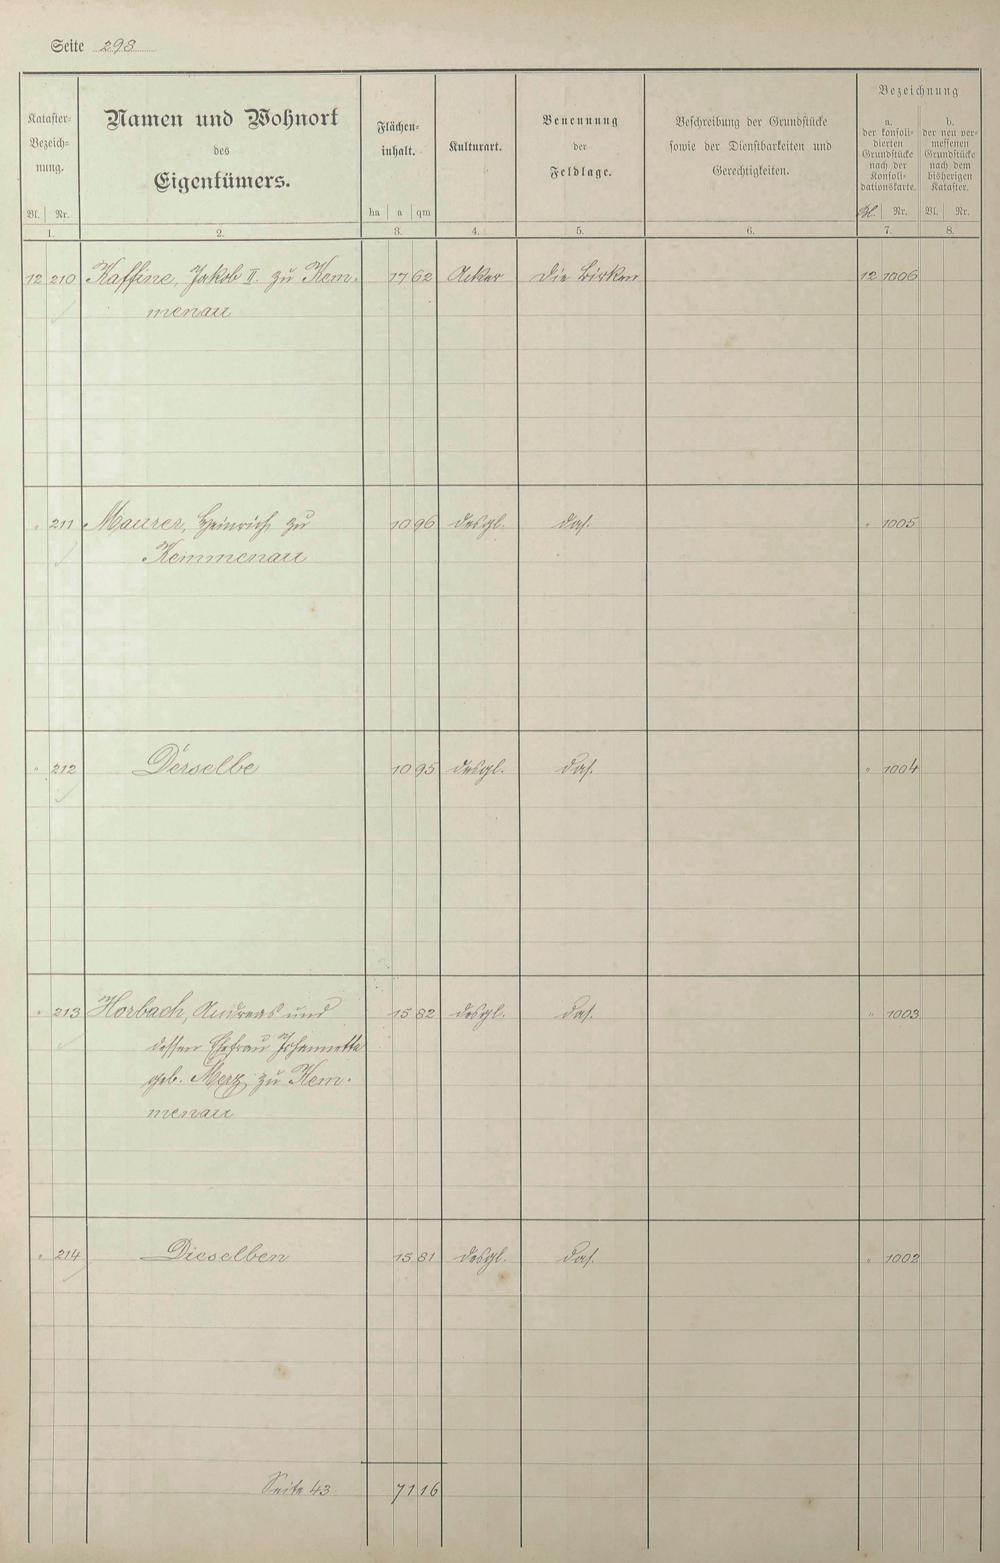 Seite 298
Kataster-
Bezeich-
nung.
Namen und Wohnort
des
Eigentümers.
Flächen-
inhalt.
Kulturart.
Benennung
der
Feldlage.
Beschreibung der Grundstücke
sowie der Dienstbarkeiten und
Gerechtigkeiten.
Bezeichnung
a.
der konsoli-
dierten
Grundstücke
nach der
Konsoli-
dationskarte.
b.
der neu ver-
messenen
Grundstücke
nach dem
bisherigen
Kataster.
Bl. Nr. ha a qm Bl. Nr. Bl. Nr.
1. 2. 3. 4. 5. 6. 7. 8.
12 210 Kaffine, Jakob II. zu Kem- 17 62 Acker Die Birken 12 1006
menau
" 211 Maurer, Heinrich zu 10 96 desgl. das. " 1005
Kemmenau
" 212 Derselbe 10 95 desgl. das. " 1004
" 213 Horbach, Andreas und 15 82 desgl. das. " 1003
dessen Ehefrau Johannette
geb. Merz zu Kem-
menau
" 214 Dieselben 15 81 desgl. das. " 1002
Seite 43 71 16